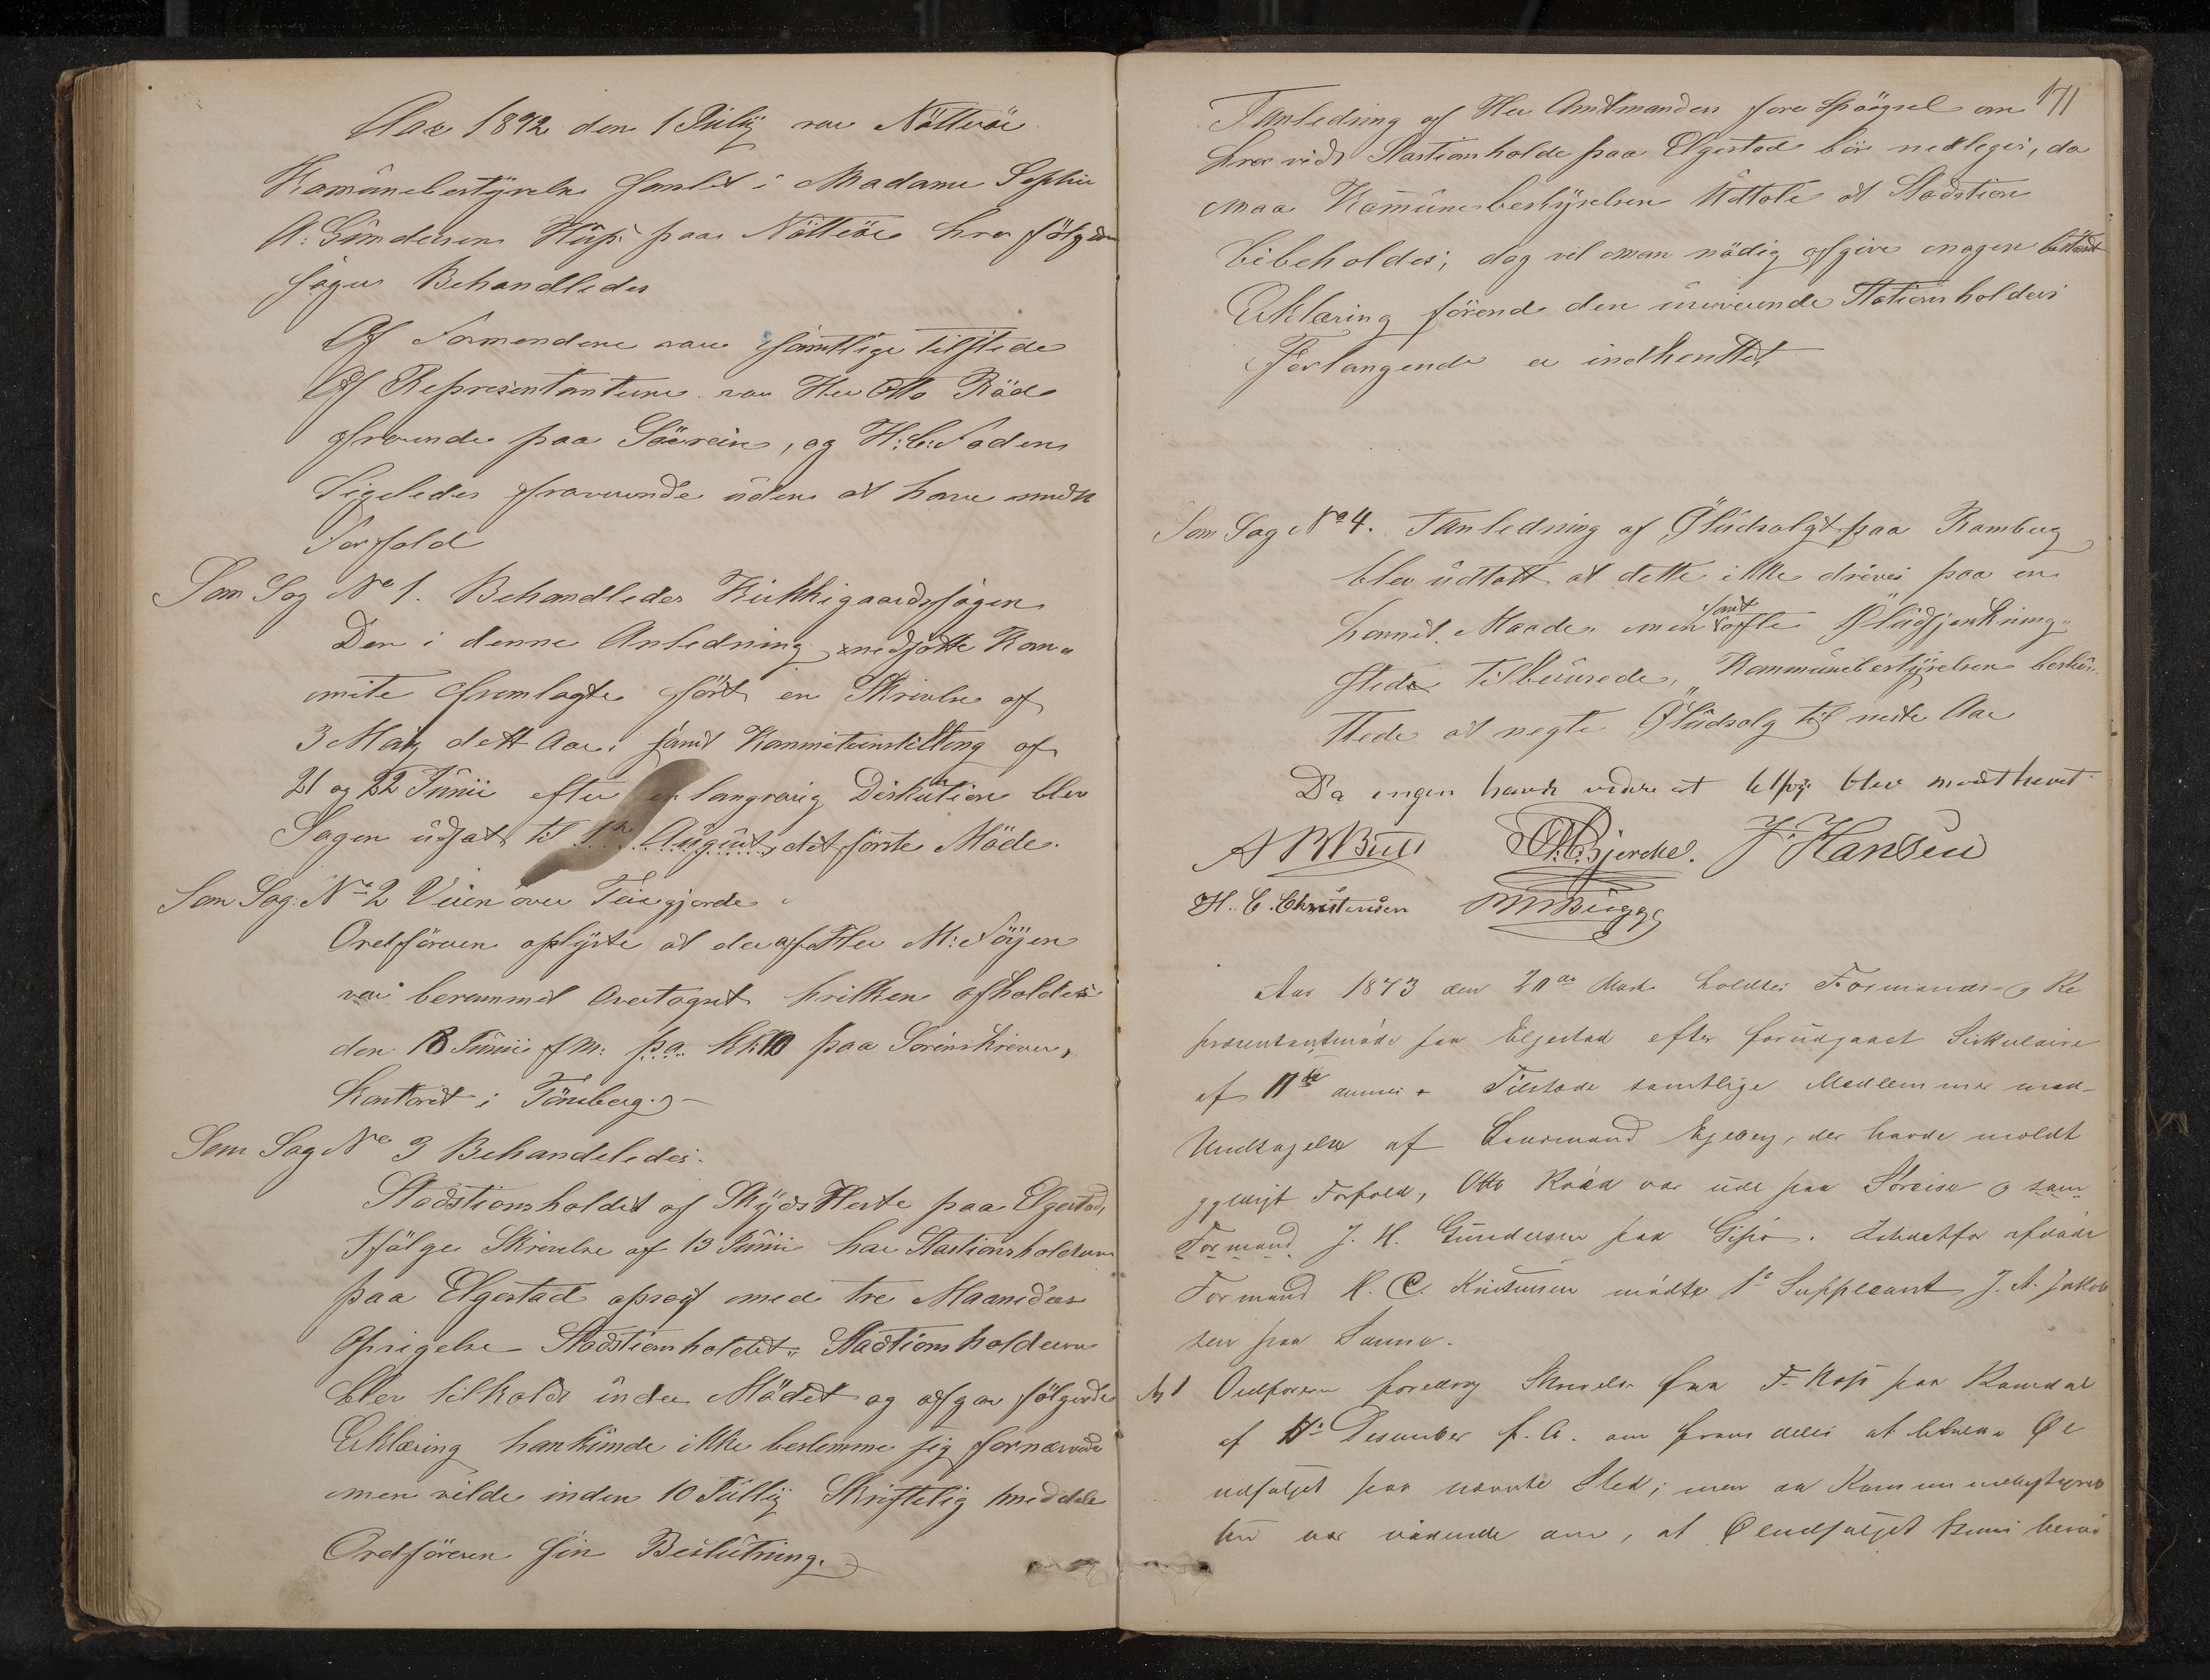 Aar 1872 den 1 Jüliÿ var Nötteröe
Komünebestÿrelse samlet i Madame Sophie
A: Gündersens Hüss paa Nötteröe hvor fölgende
sager Behandledes
Af Formendene vare samtlige tilstede
Af Representanterne var Her Otto Röd
fraverende paa Söereise, og H: C: Foden
Ligeledes fraverende üden at have meldt
Forfald
Som Sag No 1. Behandledes Kirkkegaardssagen
Den i denne Anledning nedsatte Kom„
mite fremlagte först en Skrivelse af
3 Maÿ dett Aar, samt Kommiteinstilling af
21 og 22 Jünii efter en langvarig Disküsion blev
Sagen üdsat til 1ste Aügüst, det förste Möde.
Som Sag: No 2 Veien over Teiegjorde
Ordföreren oplÿste at der af Her M: Föÿen
var berammet Overtagst hvilken afholdes
den 18 Jünii f M: pa. Kl: 10 paa Sorinskriver„
kontoret i Tönsberg.
Som Sag No 3 Behandeledes.
Stadstionsholdet af Skÿds Heste paa Elgestad,
Ifölge Skrivelse af 13 Jünii har Stastionsholderen
paa Elgestad opsagt med tre Maaneders
Opsigelse Stadstionsholdet„ Stadtionsholderen
blev tilkaldt ünder Mödet og afgav fölgende
Erklæring han künde ikke bestemme sig fornærværende
men vilde inden 10 Jülliÿ Skriftelig meddele
Ordföreren sin Beslütning.
171
I Anledning af Her Amtmanden forespöegsel om
hvor vidt Stastionsholde paa Elgestad bör nedleges, da
maa Komünebestÿrelsen Üdtale at Stadstion
bibeholdes; dog vil man nödig afgive nogen bestemt
Erklæring förend den nuverende Stationsholders
Forlangende er indhenttet
Som Sag No 4. I Anledning af Ölüdsalgt paa Ramberg
blev üdtalt at dette ikke dröves paa en
hennet. Maade„ men samt ofte Ölüdsjenkning„
sted Tilbeürede, Kommünebestÿrelsen beslü„
ttede at negte Ölüdsalg til neste Aar
Da ingen havde videre at tilföje blev mödet hævet
A M Bull O. C. Bjerche. J. Hansen
H. C. Christensen M Bügge
Aar 1873 den 20de Marts holdtes Formands- og Re
præsentantmöde paa Elgestad efter forüdgaaet Sirkulaire
af 11te dennes. Tilstæde samtlige Medlemmer med
Undtagelse af Lensmand Egeberg, der havde meldt
gyldigt Forfald, Otto Rööd var üde paa Söreise og sam
Formand J. H. Gundersen paa Gipö. Istedetfor afdøde
Formand H. C. Kristensen mødte 1e Suppleant J. A. Jakob
sen paa Sanne.
No 1 Ordføreren foredrog Skrivelse fra F. Hass paa Ramdal
af 11te Desember f. A. om fremdeles at beholde Øl
udsalget paa nævnte Sted; men da Kommunebestyrel
sen var vidende om, at Øludsalget